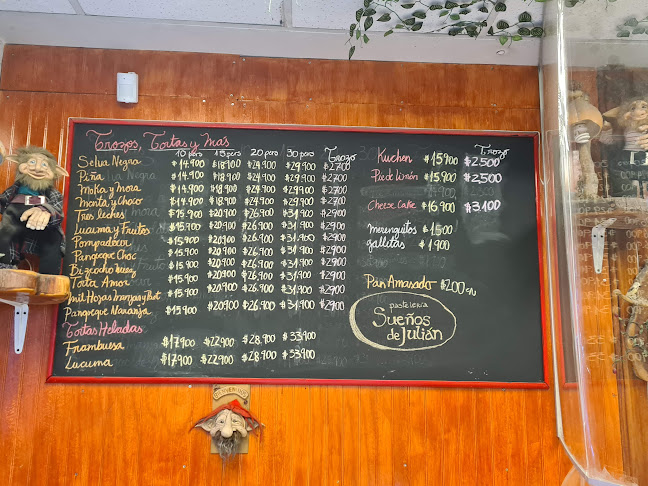 Trozos, Tortas y más
10 pers 15 pers 20 pers 30 pers Trozo
Selva Negra $14.900 $18.900 $24.900 $29.900 $2.700
Piña $14.900 $18.900 $24.900 $29.900 $2.700
Moka y mora $14.900 $18.900 $24.900 $29.900 $2.700
Manta y Choco $14.900 $18.900 $24.900 $29.900 $2.700
Tres leches $15.900 $20.900 $26.900 $31.900 $2.900
Lucuma y Frutos $15.900 $20.900 $26.900 $31.900 $2.900
Pompadour $15.900 $20.900 $26.900 $31.900 $2900
Panqueque Choc $15.900 $20.900 $26.900 $31.900 $2900
Bizcocho $15.900 $20.900 $26.900 $31.900 $2900
Torta Amor $15.900 $20.900 $26.900 $31.900 $2900
Mil Hojas $15.900 $20.900 $26.900 $31.900 $2900
Panqueque Naranja $15.900 $20.900 $26.900 $31.900 $2900
Tortas Heladas
Frambuesa $17.900 $22.900 $28.900 $33.900
Lucuma $17.900 $22.900 $28.900 $33.900
Trozo
Kuchen $15.900 $2.500
Pie de limón $15.900 $2.500
Cheese Cake $16.900 $3.100
merenguitos $1.500
galletas $1.900
Pan Amasado $200 c/u
pastelería
Sueños
de Julián